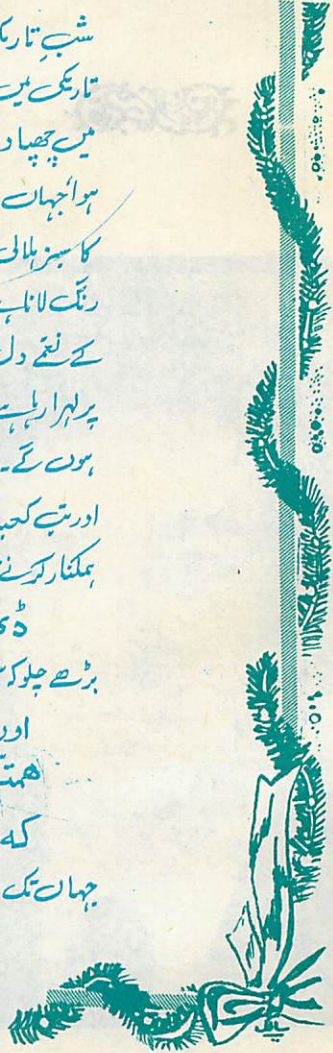 شبِ تاریک
تاریکی میں
میں چھپا د
ہوا جہاں
کا سبز ہلالی
رنگ لانا ہے
کے نغمے دل
پر لہرا رہا ہے
ہوں گے۔
اور تب کہیں
ہمکنار کرنے
بڑھے چلو کہ
اور
ھمت
کہ
جہاں تک